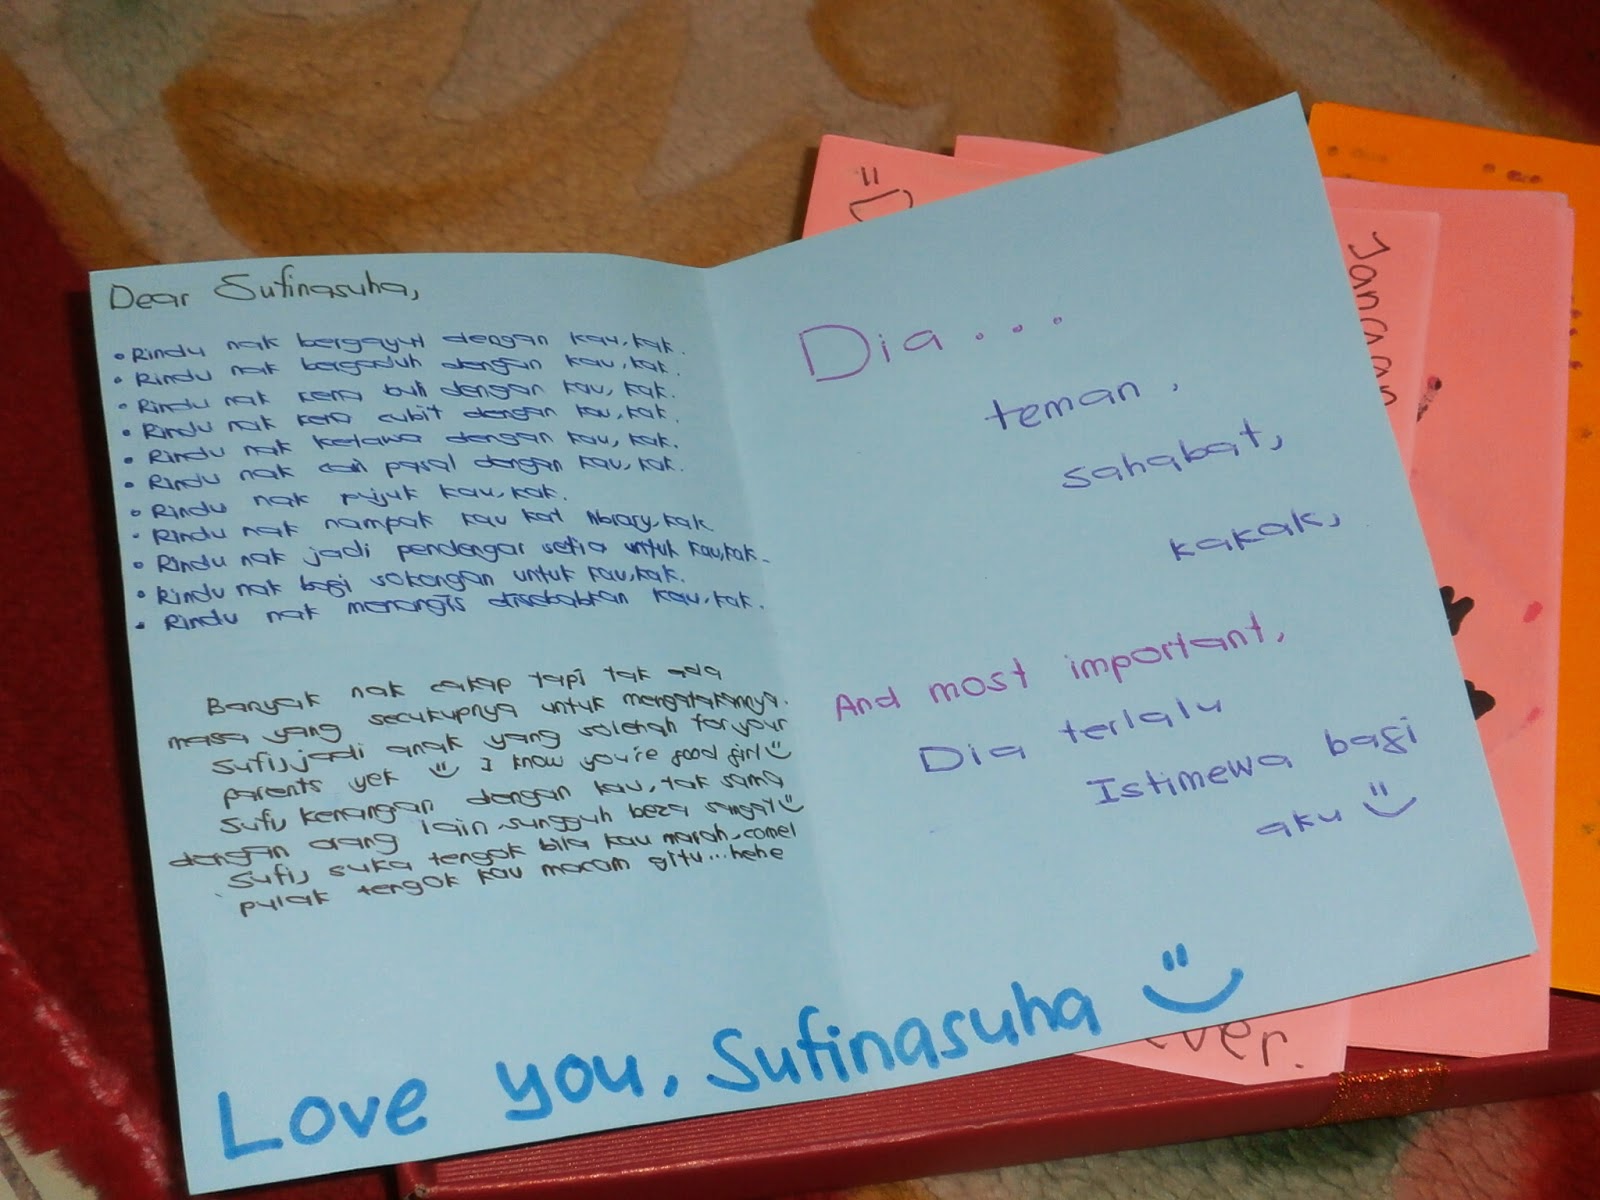 Dear Sufinasuha,
• Rindu nak bergayut dengan kau, kak.
• Rindu nak bergaduh dengan kau, kak.
• Rindu nak kena buli dengan kau, kak.
• Rindu nak kena cubit dengan kau, kak.
• Rindu nak ketawa dengan kau, kak.
• Rindu nak cari pasal dengan kau, kak.
• Rindu nak pujuk kau, kak.
• Rindu nak nampak kau kat library, kak
• Rindu nak jadi pendengar setia untuk kau, kak.
• Rindu nak bagi sokongan untuk kau, kak.
• Rindu nak menangis disebabkan kau, kak.
Banyak nak cakap tapi tak ada
masa yang secukupnya untuk mengatakannya.
Sufi, jadi anak yang solehah for your
parents yek I know you're good girl
Sufi, kenangan dengan kau, tak sama
dengan orang lain sungguh beza sangat
Sufi, suka tengok bila kau marah, comel
pulak tengok kau macam gitu...hehe
Dia...
teman,
sahabat,
kakak,
And most important,
Dia terlalu
Istimewa bagi
aku
Love you, Sufinasuha
Jangan
ver.